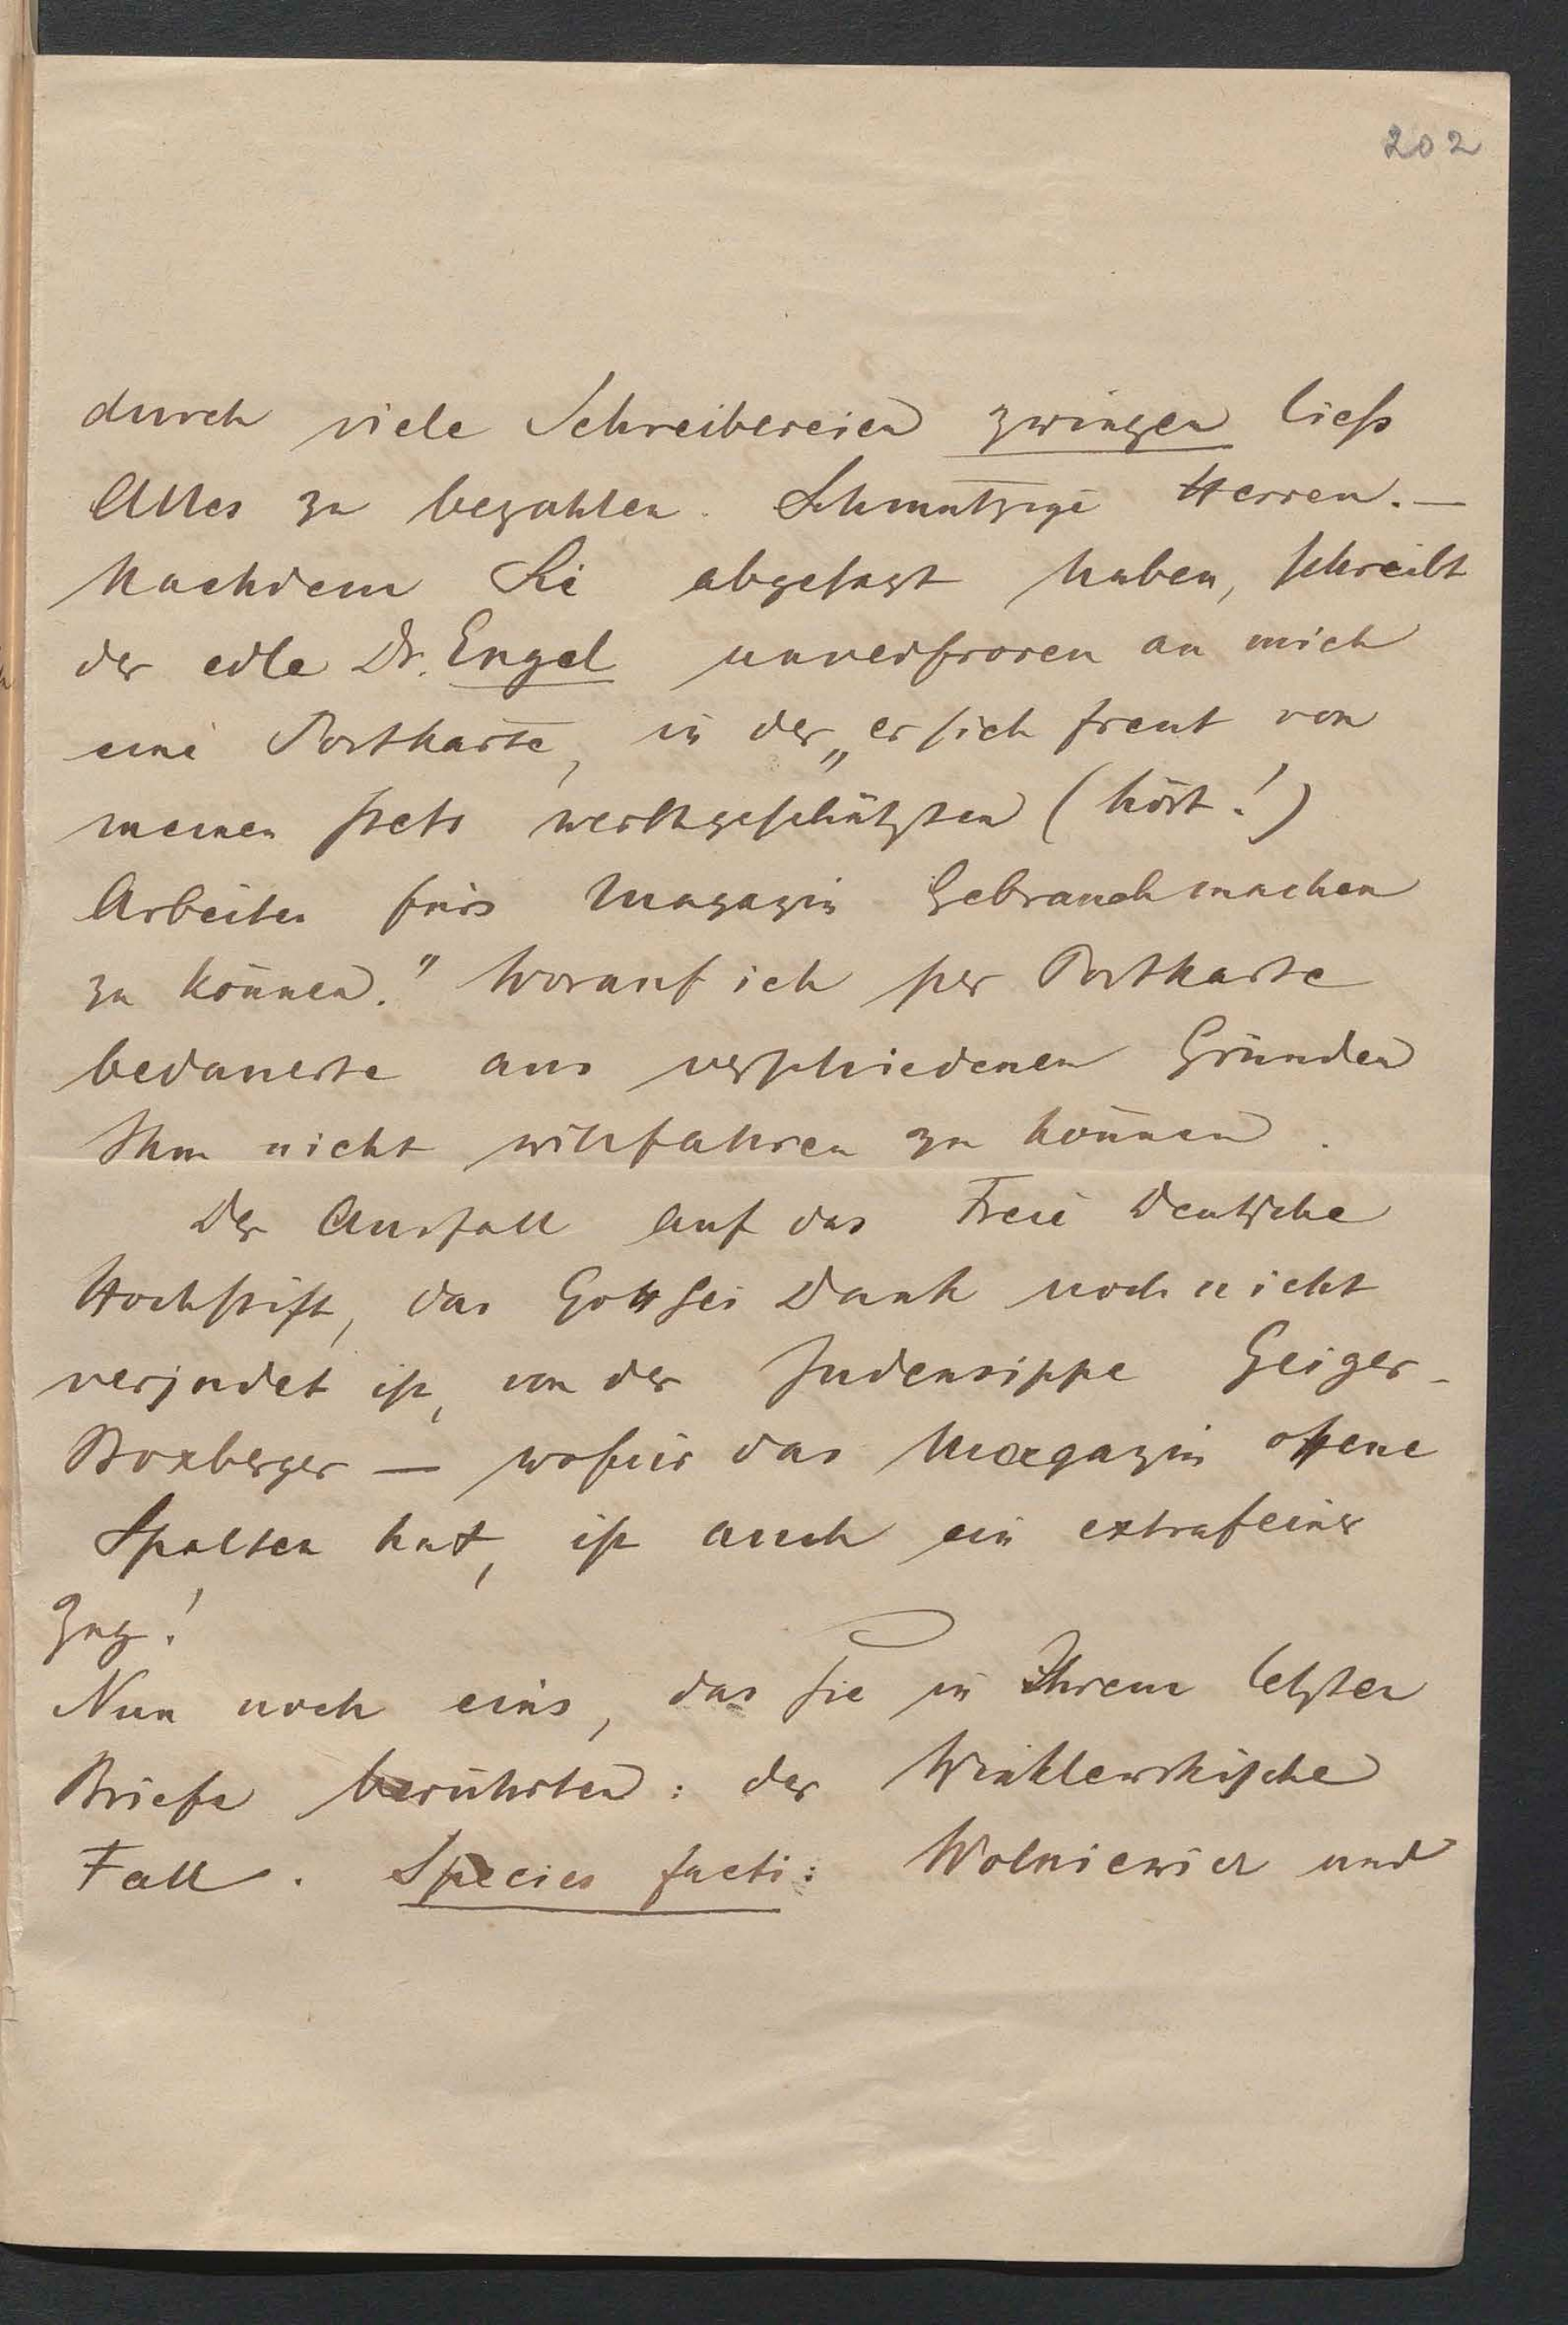 202
durch viele Schreibereien zwingen liess
Alles zu bezahlen. Schmutzige Herren. —
Nachdem Sie abgesagt haben, schreibt
der edle Dr. Engel unverfroren an mich
eine Postkarte, in der „er sich freut von
meinen stets werthgeschätzten (hört!)
Arbeiten fürs Magazin Gebrauch machen
zu können." Worauf ich per Postkarte
bedauerte aus verschiedenen Gründen
Ihm nicht willfahren zu können.
Der Ausfall auf das Freie Deutsche
Hochstift, das Gott sei Dank noch nicht
verjudet ist, von der Judensippe Geiger-
Boxberger — wofür das Magazin offene
Spalten hat, ist auch ein extrafeiner
Zug!
Nun noch eins, das Sie in Ihrem letzten
Briefe berührten: der Winklewskische
Fall. Species facti: Wolniewicz und